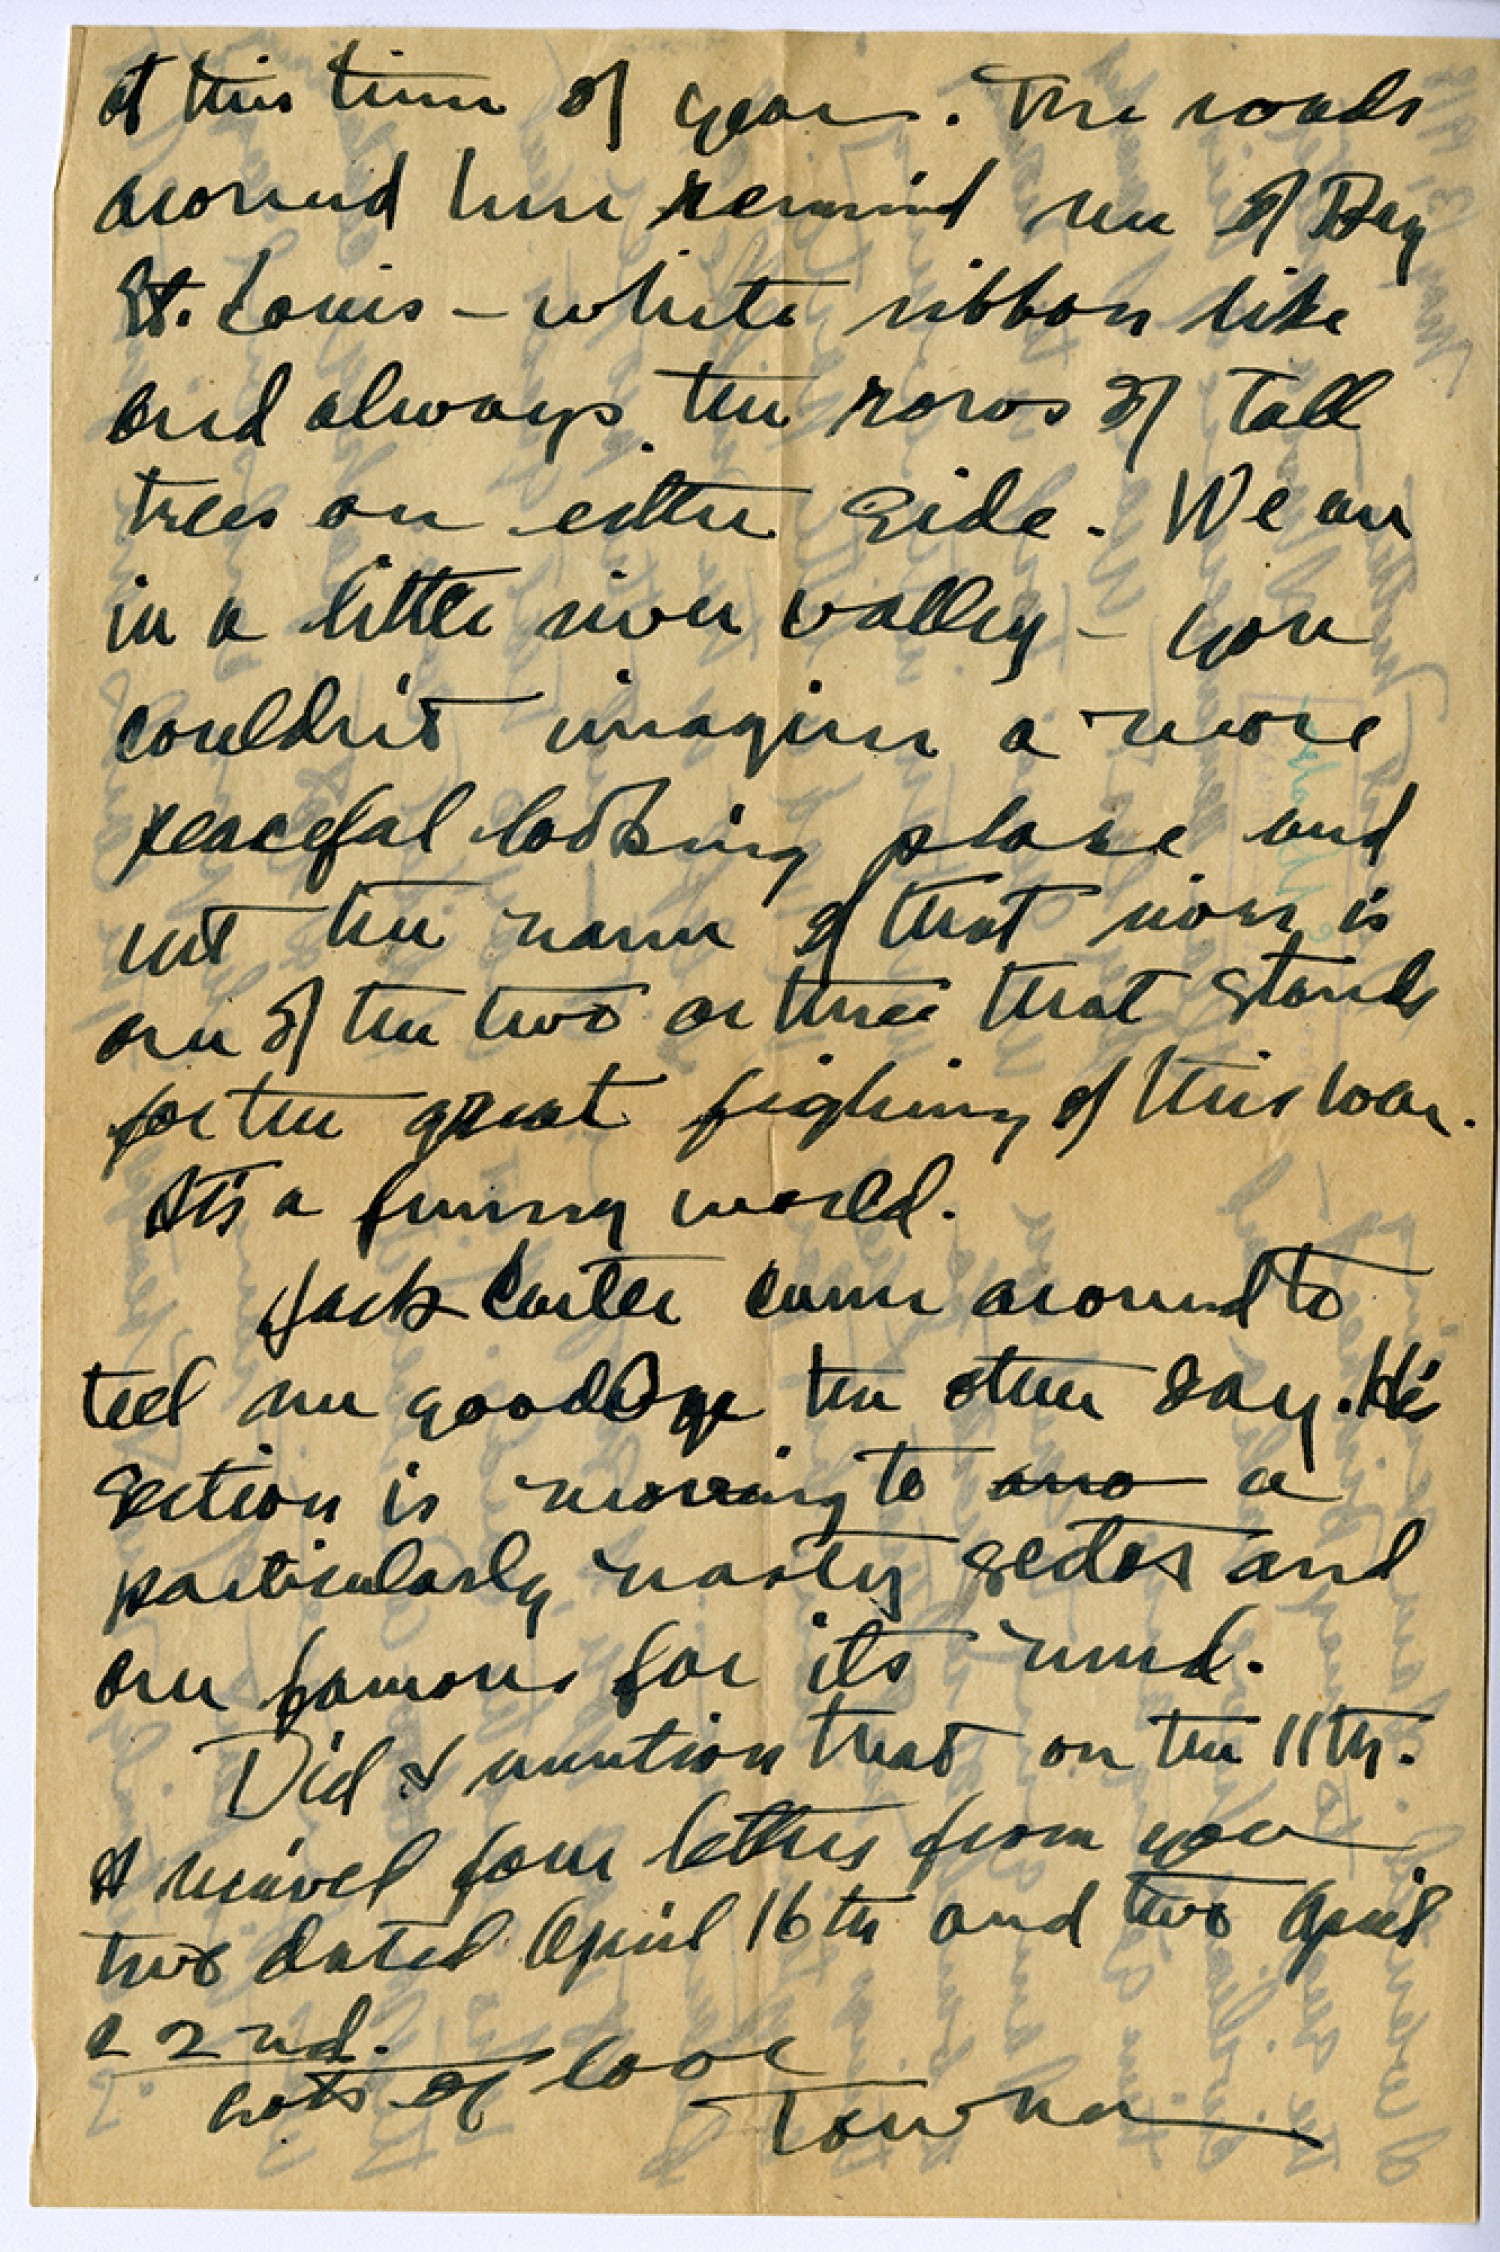 at this time of year. The roads
around here remind me of Bay
St. Louis – white ribbon like
and always the rows of tall
trees on either side. We are
in a little river valley – you
couldn't imagine a more
peaceful looking place and
yet the name of that river is
one of the two or three that stands
for the great fighing of this war.
It's a funny world.
Jack Carter came around to
tell me goodbye the other day. His
section is moving to ano a
particularly nasty sector and
one famous for its mud.
Did I mention that on the 11th.
I received four letters from you
two dated April 16th and two April
22nd.
Lots of love